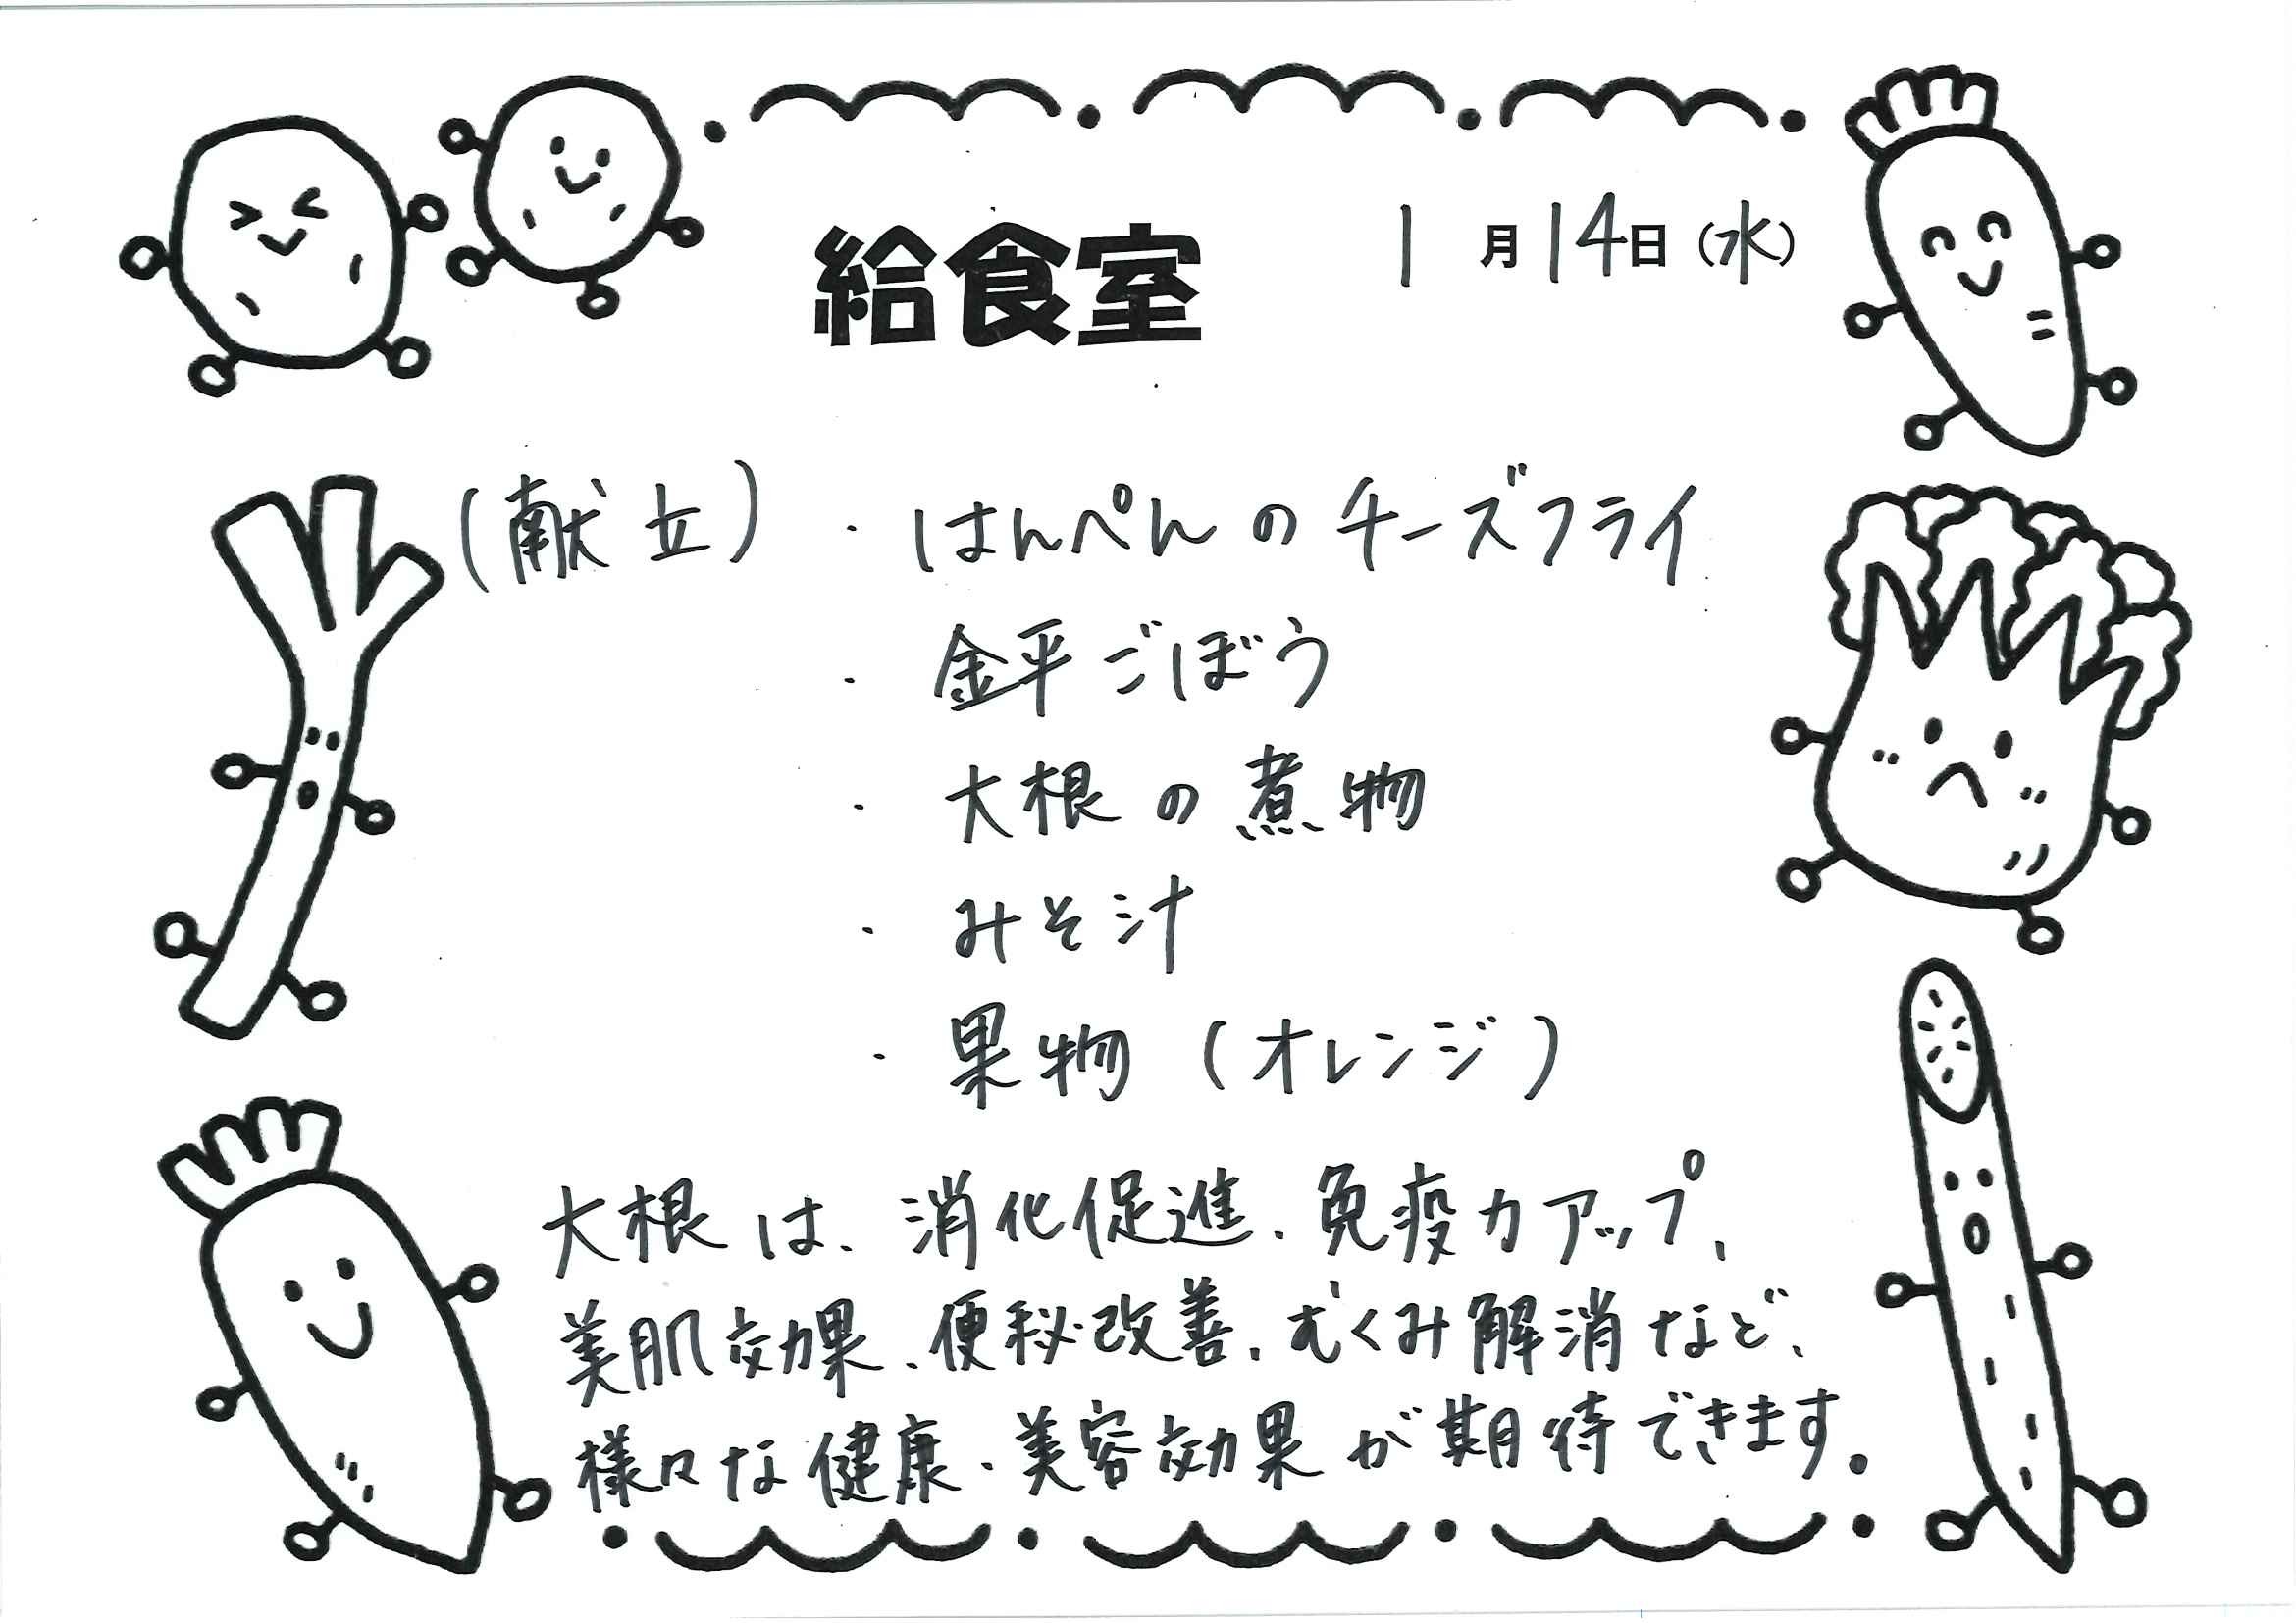 給食室
1月14日(水)
(献立)・はんぺんのチーズフライ
・金平ごぼう
・大根の煮物
・みそ汁
・果物(オレンジ)
大根は、消化促進、免疫力アップ、
美肌効果、便秘改善、むくみ解消など、
様々な健康、美容効果が期待できます。